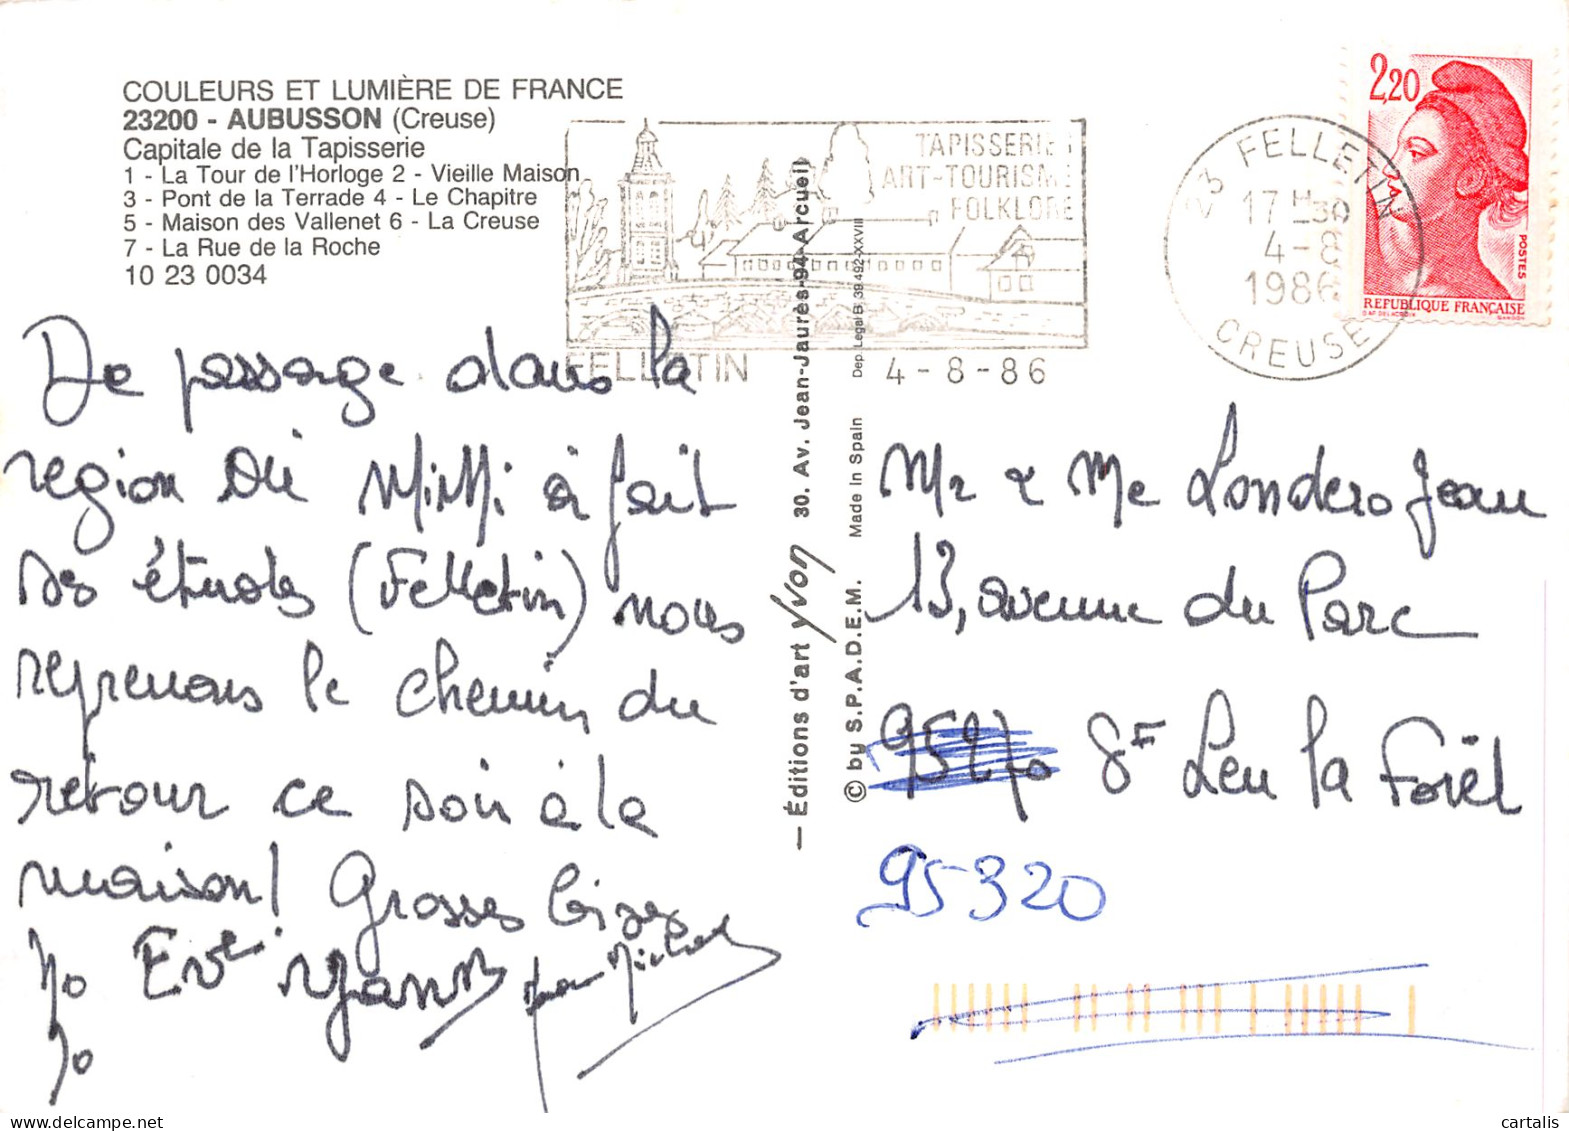 COULEURS ET LUMIÈRE DE FRANCE
23200 - AUBUSSON (Creuse)
Capitale de la Tapisserie
1 - La Tour de l'Horloge 2 - Vieille Maison
3 - Pont de la Terrade 4 - Le Chapitre
5 - Maison des Vallenet 6 - La Creuse
7 - La Rue de la Roche
10 23 0034
TAPISSERIE
ART-TOURISME
FOLKLORE
FELLETIN 4-8-86
23 FELLETIN
17 H 30
4-8
1986
CREUSE
2,20
POSTES
REPUBLIQUE FRANÇAISE
De passage dans la
region où MiMi à fait
ses études (Felletin) nous
reprenons le chemin du
retour ce soir à la
maison! Grosses bises
Jo Eve yann Jean Michel
Jo
— Éditions d'art yvon 30. Av. Jean-Jaurès-94-Arcueil
© by S.P.A.D.E.M. Made in Spain Dep. Legal B. 39.492-XXVIII
Mr & Me Londero Jean
13, avenue du Parc
95270 St Leu la Forêt
95320
cartalis